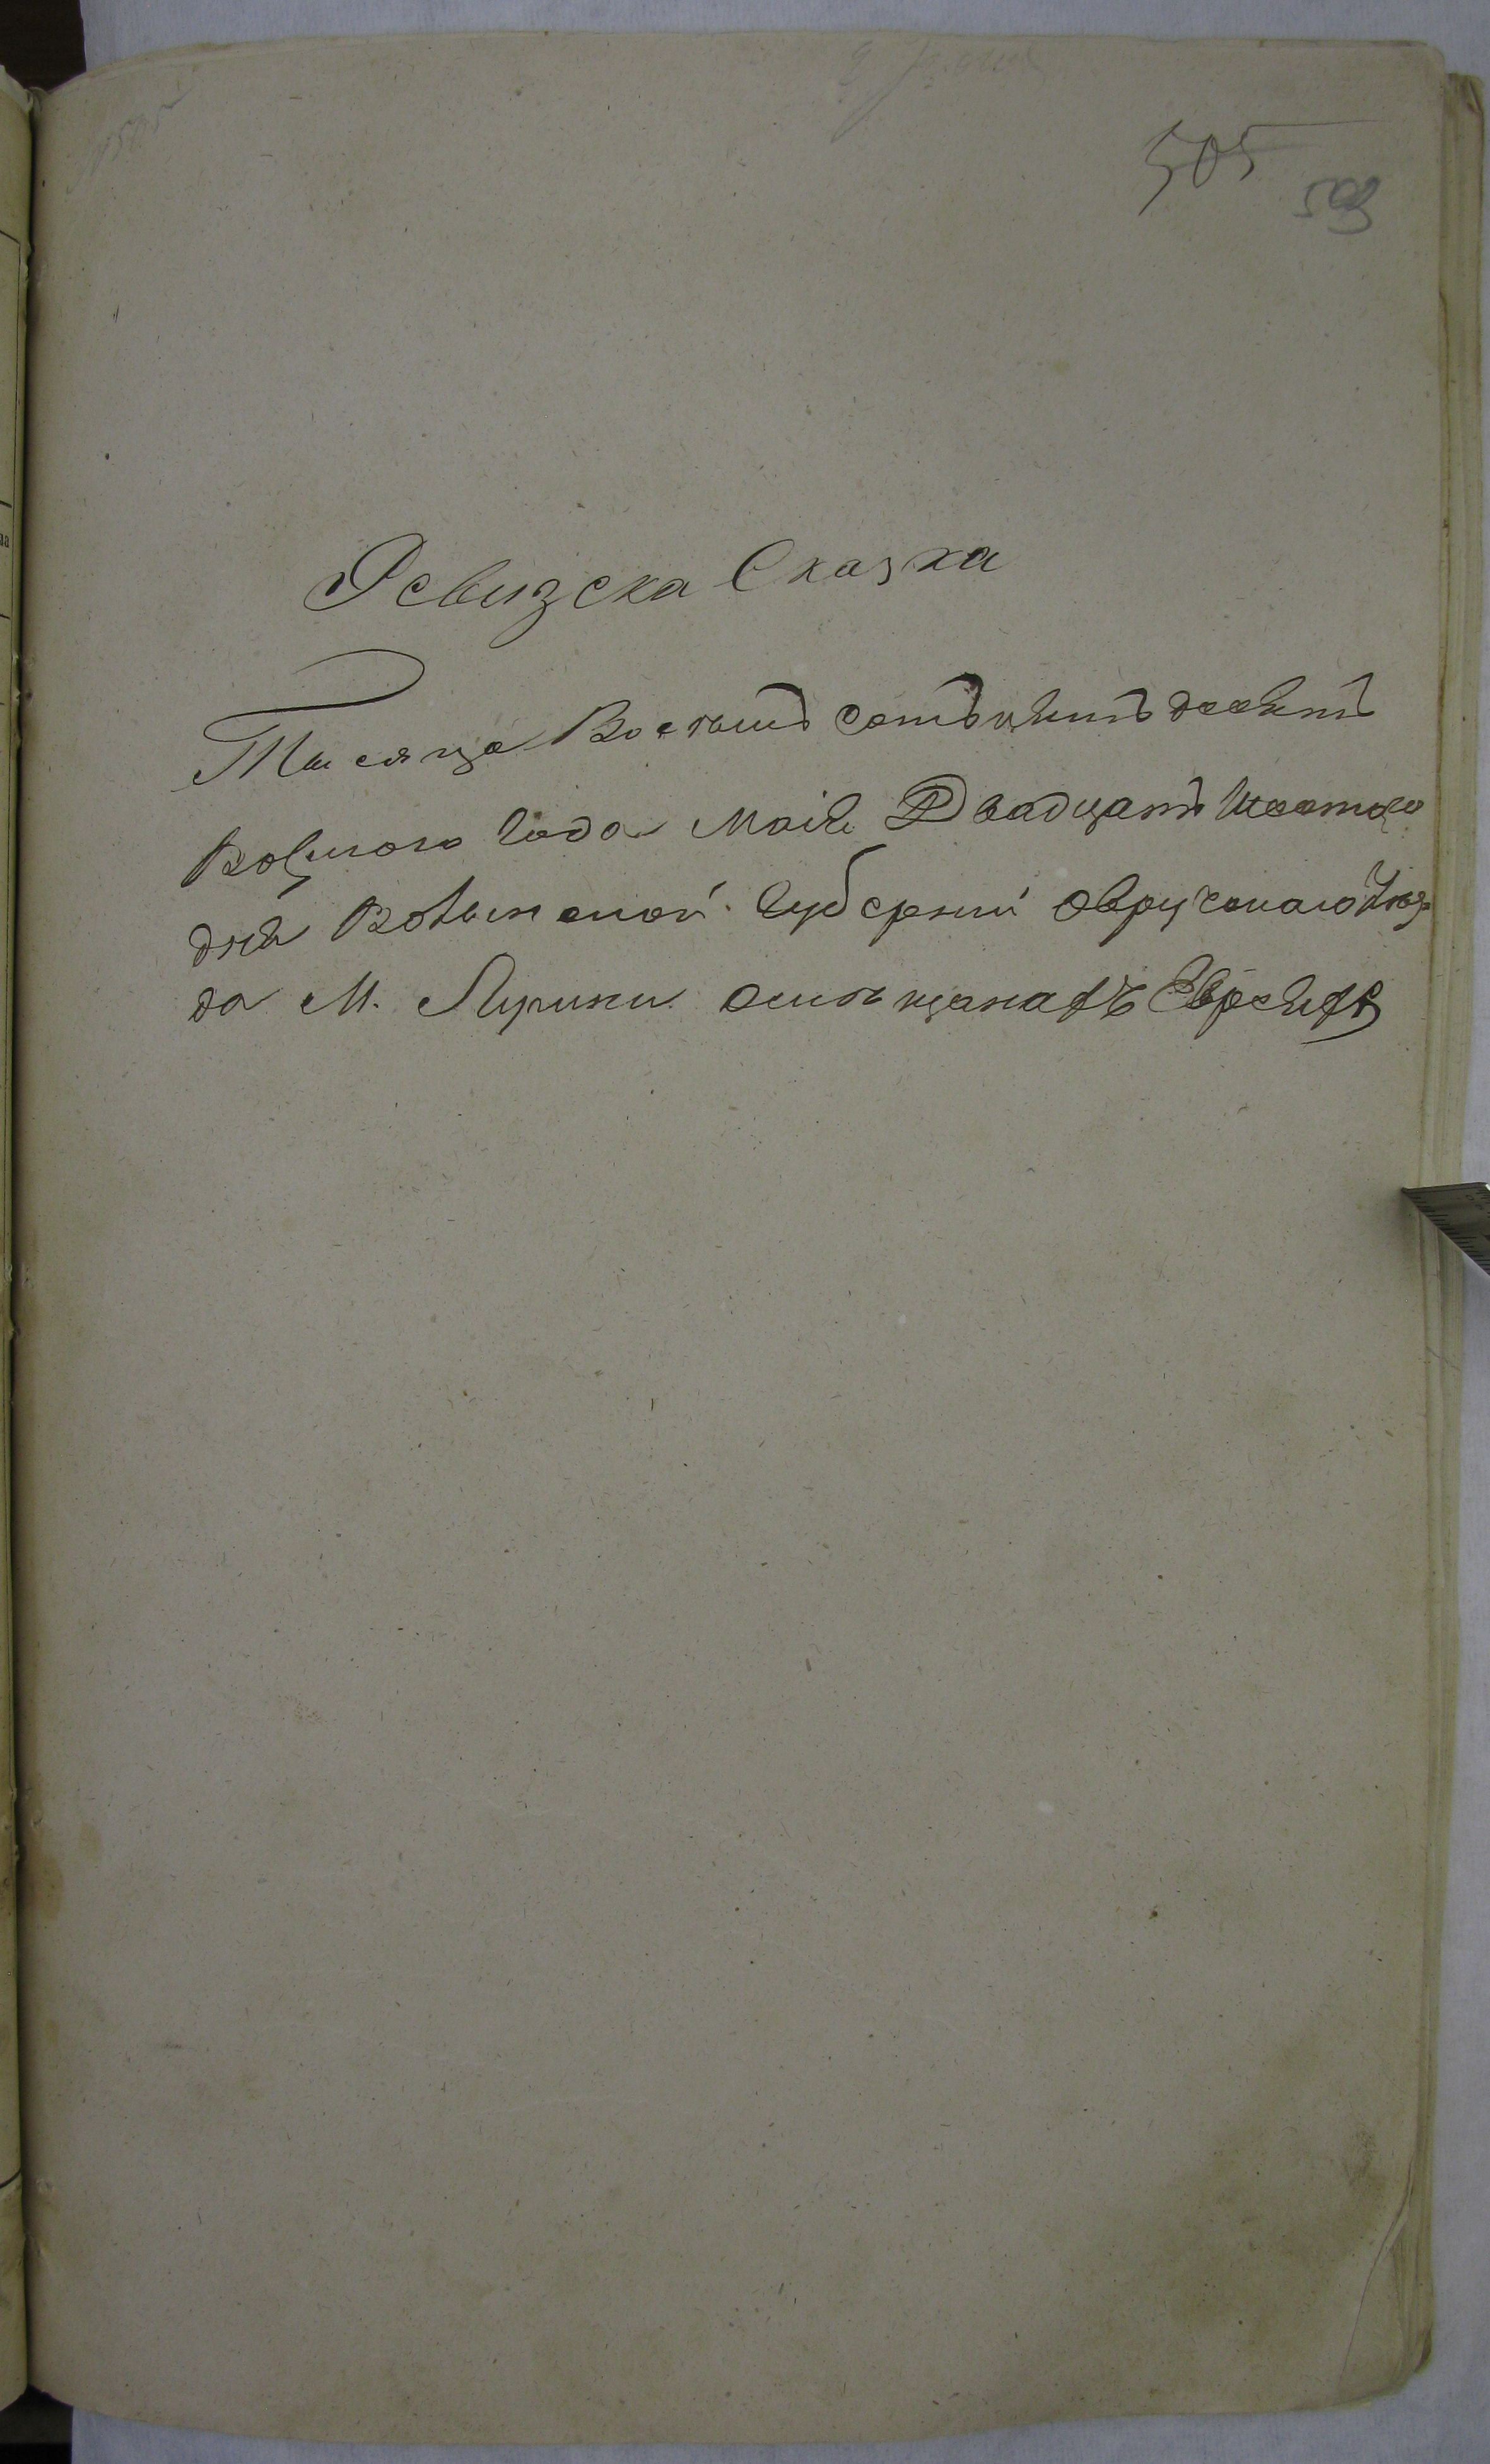 505
509
Ревизска Сказка
Тысяща Восемъ сотъ пятъ десятъ
Восмого Года Маія Двадцатъ Шестого
дня Волынской Губерніи Овручскаго Уѣз=
да М. Лугины о мѣщанахъ Евреяхъ